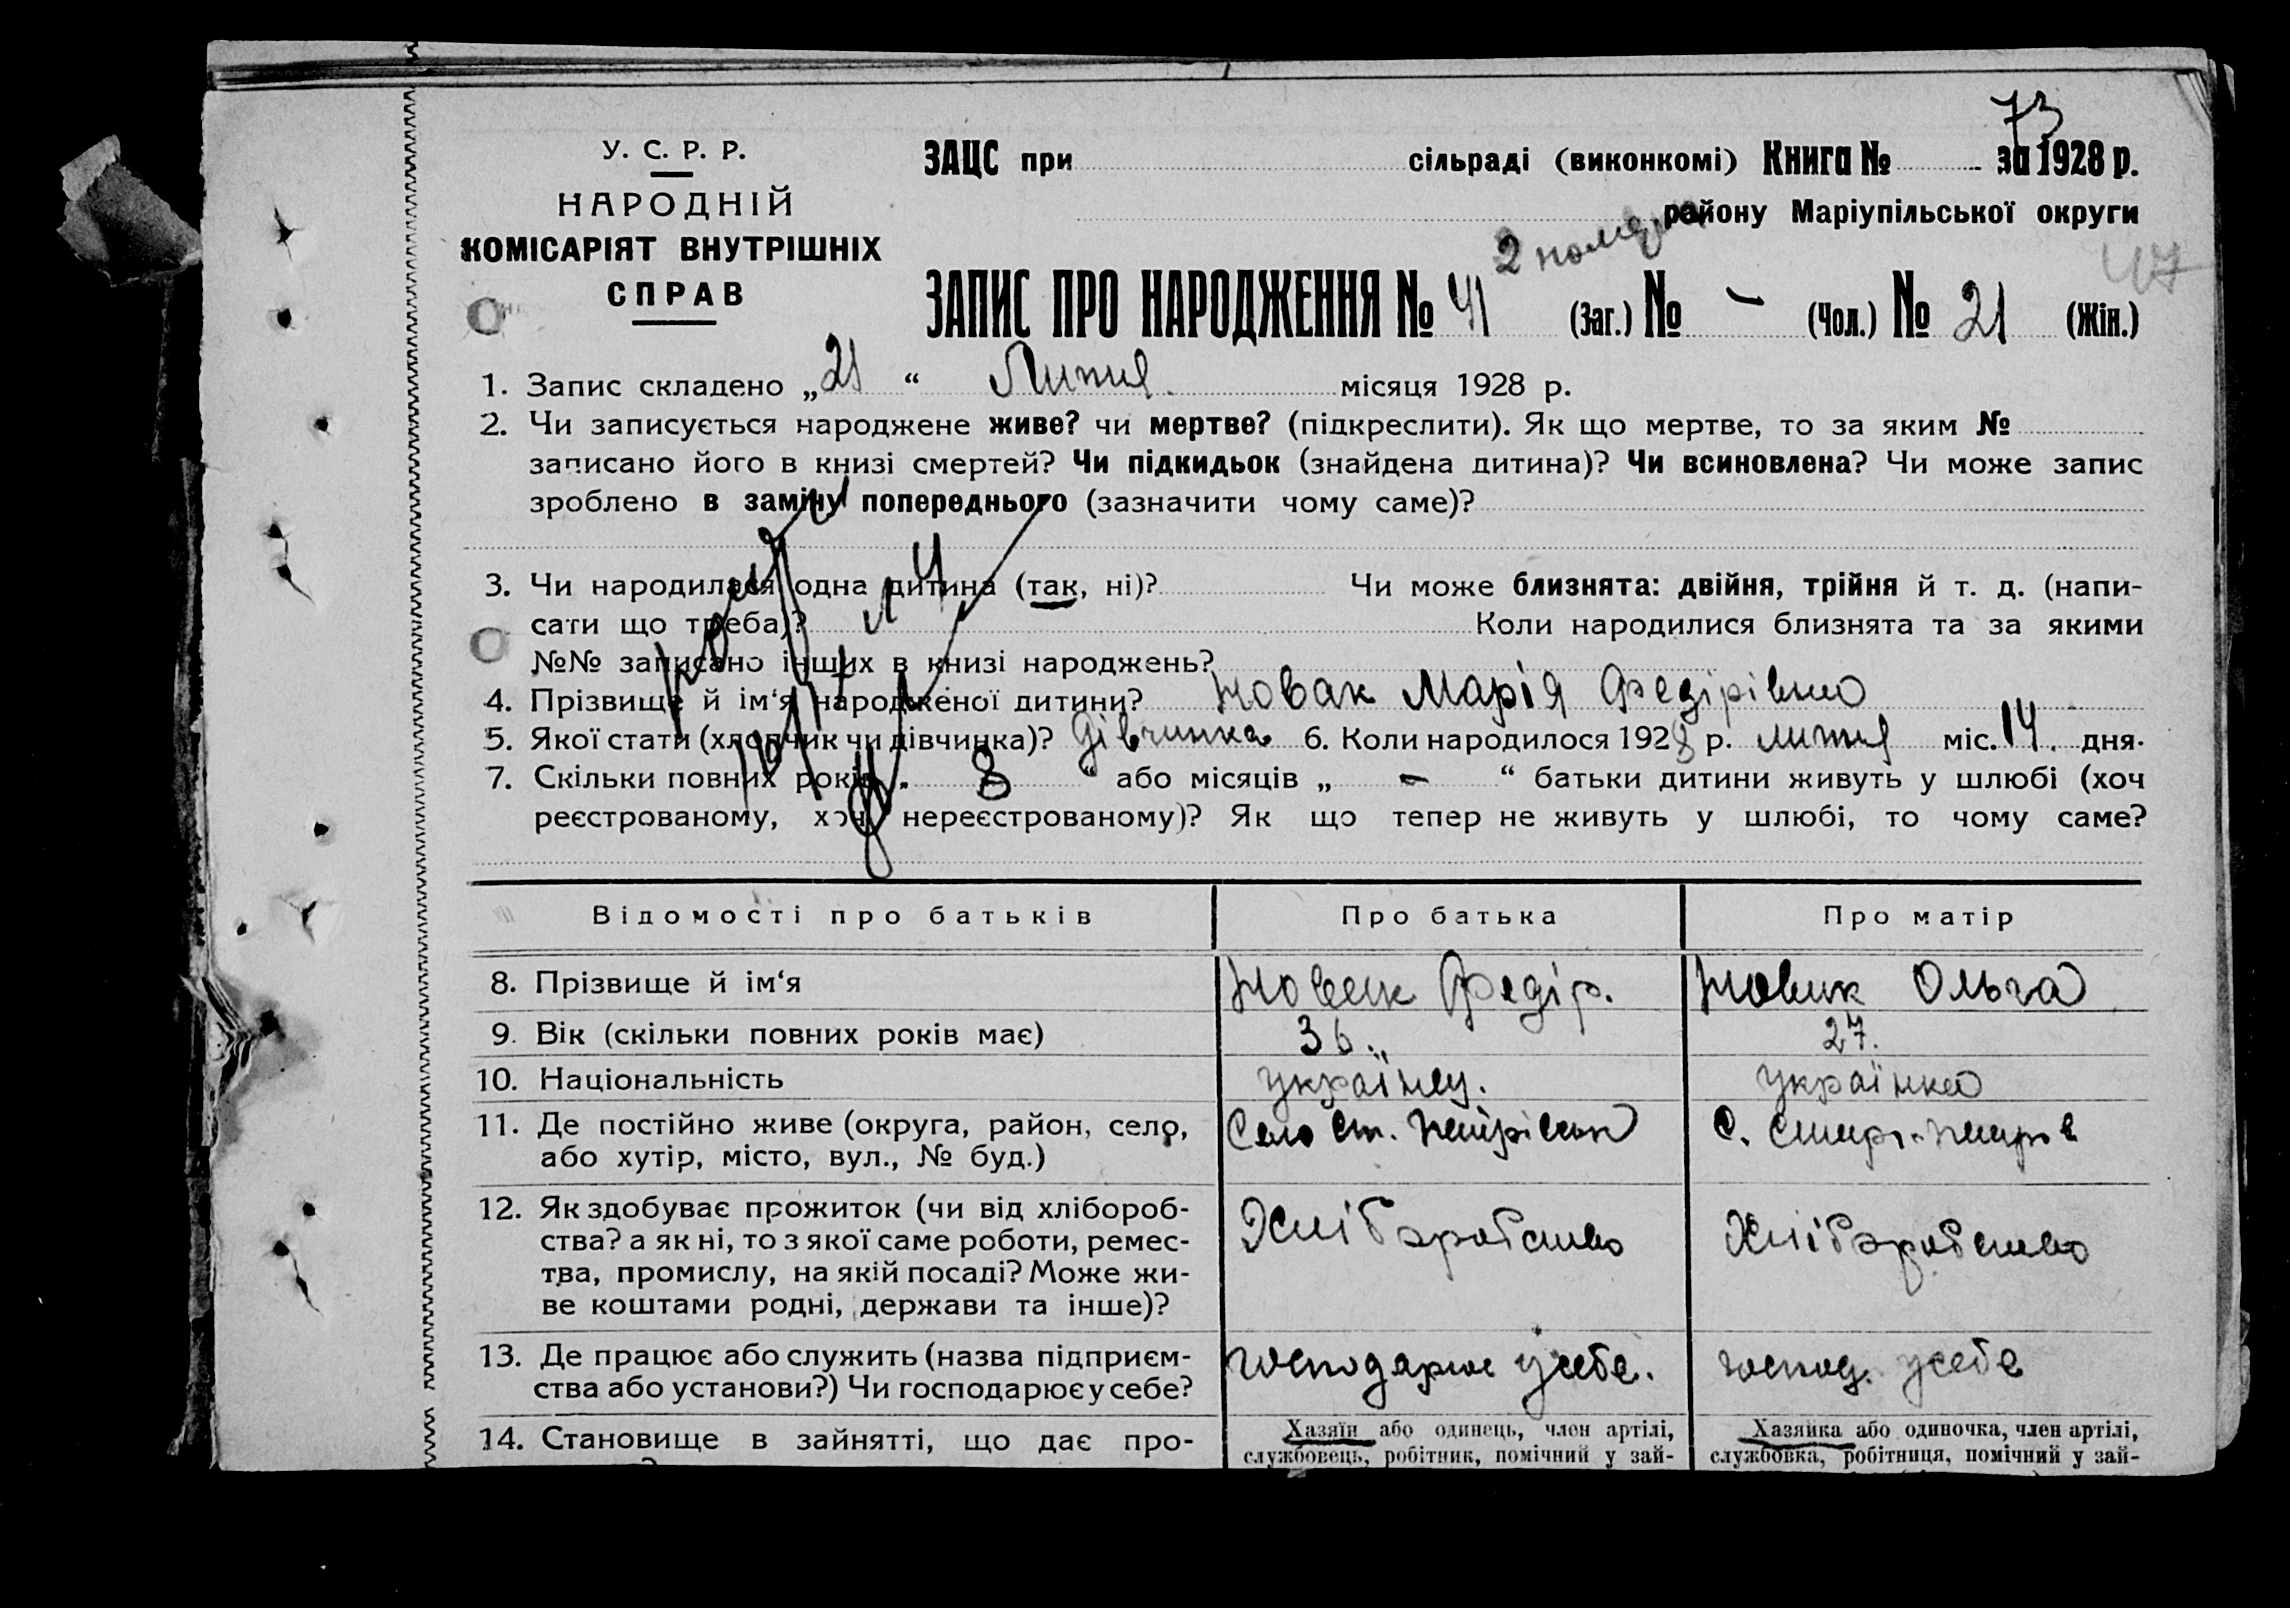 73
У. С. Р. Р.
НАРОДНІЙ
КОМІСАРІЯТ ВНУТРІШНІХ
СПРАВ
ЗАЦС при сільраді (виконкомі) Книга № за 1928 р.
району Маріупільської округи
47
ЗАПИС ПРО НАРОДЖЕННЯ № 41 (Заг.) № - (Чол.) № 21 (Жін.)
1. Запис складено „21“ Липня місяця 1928 р.
2. Чи записується народжене живе? чи мертве? (підкреслити). Як що мертве, то за яким №
записано його в книзі смертей? Чи підкидьок (знайдена дитина)? Чи всиновлена? Чи може запис
зроблено в заміну попереднього (зазначити чому саме)?
3. Чи народилася одна дитина (так, ні)? Чи може близнята: двійня, трійня й т. д. (напи-
сати що треба)? Коли народилися близнята та за якими
№№ записано інших в книзі народжень?
4. Прізвище й ім‘я народженої дитини? Новак Марія Федірівна
5. Якої стати (хлопчик чи дівчинка)? Дівчинка 6. Коли народилося 1928 р. липня міс. 14. дня.
7. Скільки повних років „ 8 “ або місяців „ - “ батьки дитини живуть у шлюбі (хоч
реєстрованому, хоч нереєстрованому)? Як що тепер не живуть у шлюбі, то чому саме?
Відомості про батьків Про батька Про матір
8. Прізвище й ім‘я Новак Федір. Новак Ольга
9. Вік (скільки повних років має) 36. 27.
10. Національність українец. українка
11. Де постійно живе (округа, район, село, Село Ст. С.
або хутір, місто, вул., № буд.)
12. Як здобуває прожиток (чи від хлібороб- Хліборобство Хліборобство
ства? а як ні, то з якої саме роботи, ремес-
тва, промислу, на якій посаді? Може жи-
ве коштами родні, держави та інше)?
13. Де працює або служить (назва підприєм- господарює у себе. господ. у себе
ства або установи?) Чи господарює у себе?
14. Становище в зайнятті, що дає про- Хазяїн або одинець, член артілі, Хазяйка або одиночка, член артілі,
службовець, робітник, помічний у зай- службовка, робітниця, помічний у зай-